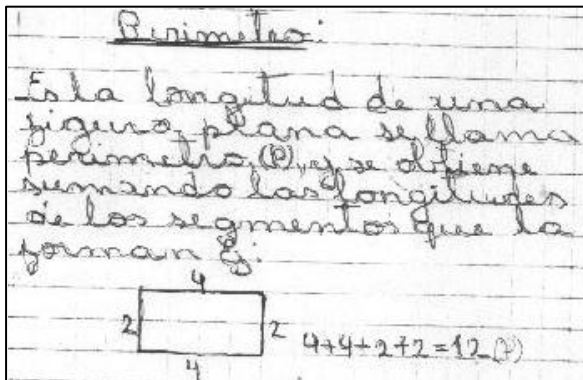 Perimetro:
Es la longitud de una
figura plana se llama
perimetro (P), y se obtiene
sumando las longitudes
de los segmentos que la
forman Ej:
4
2 2 4+4+2+2=12 (P)
4